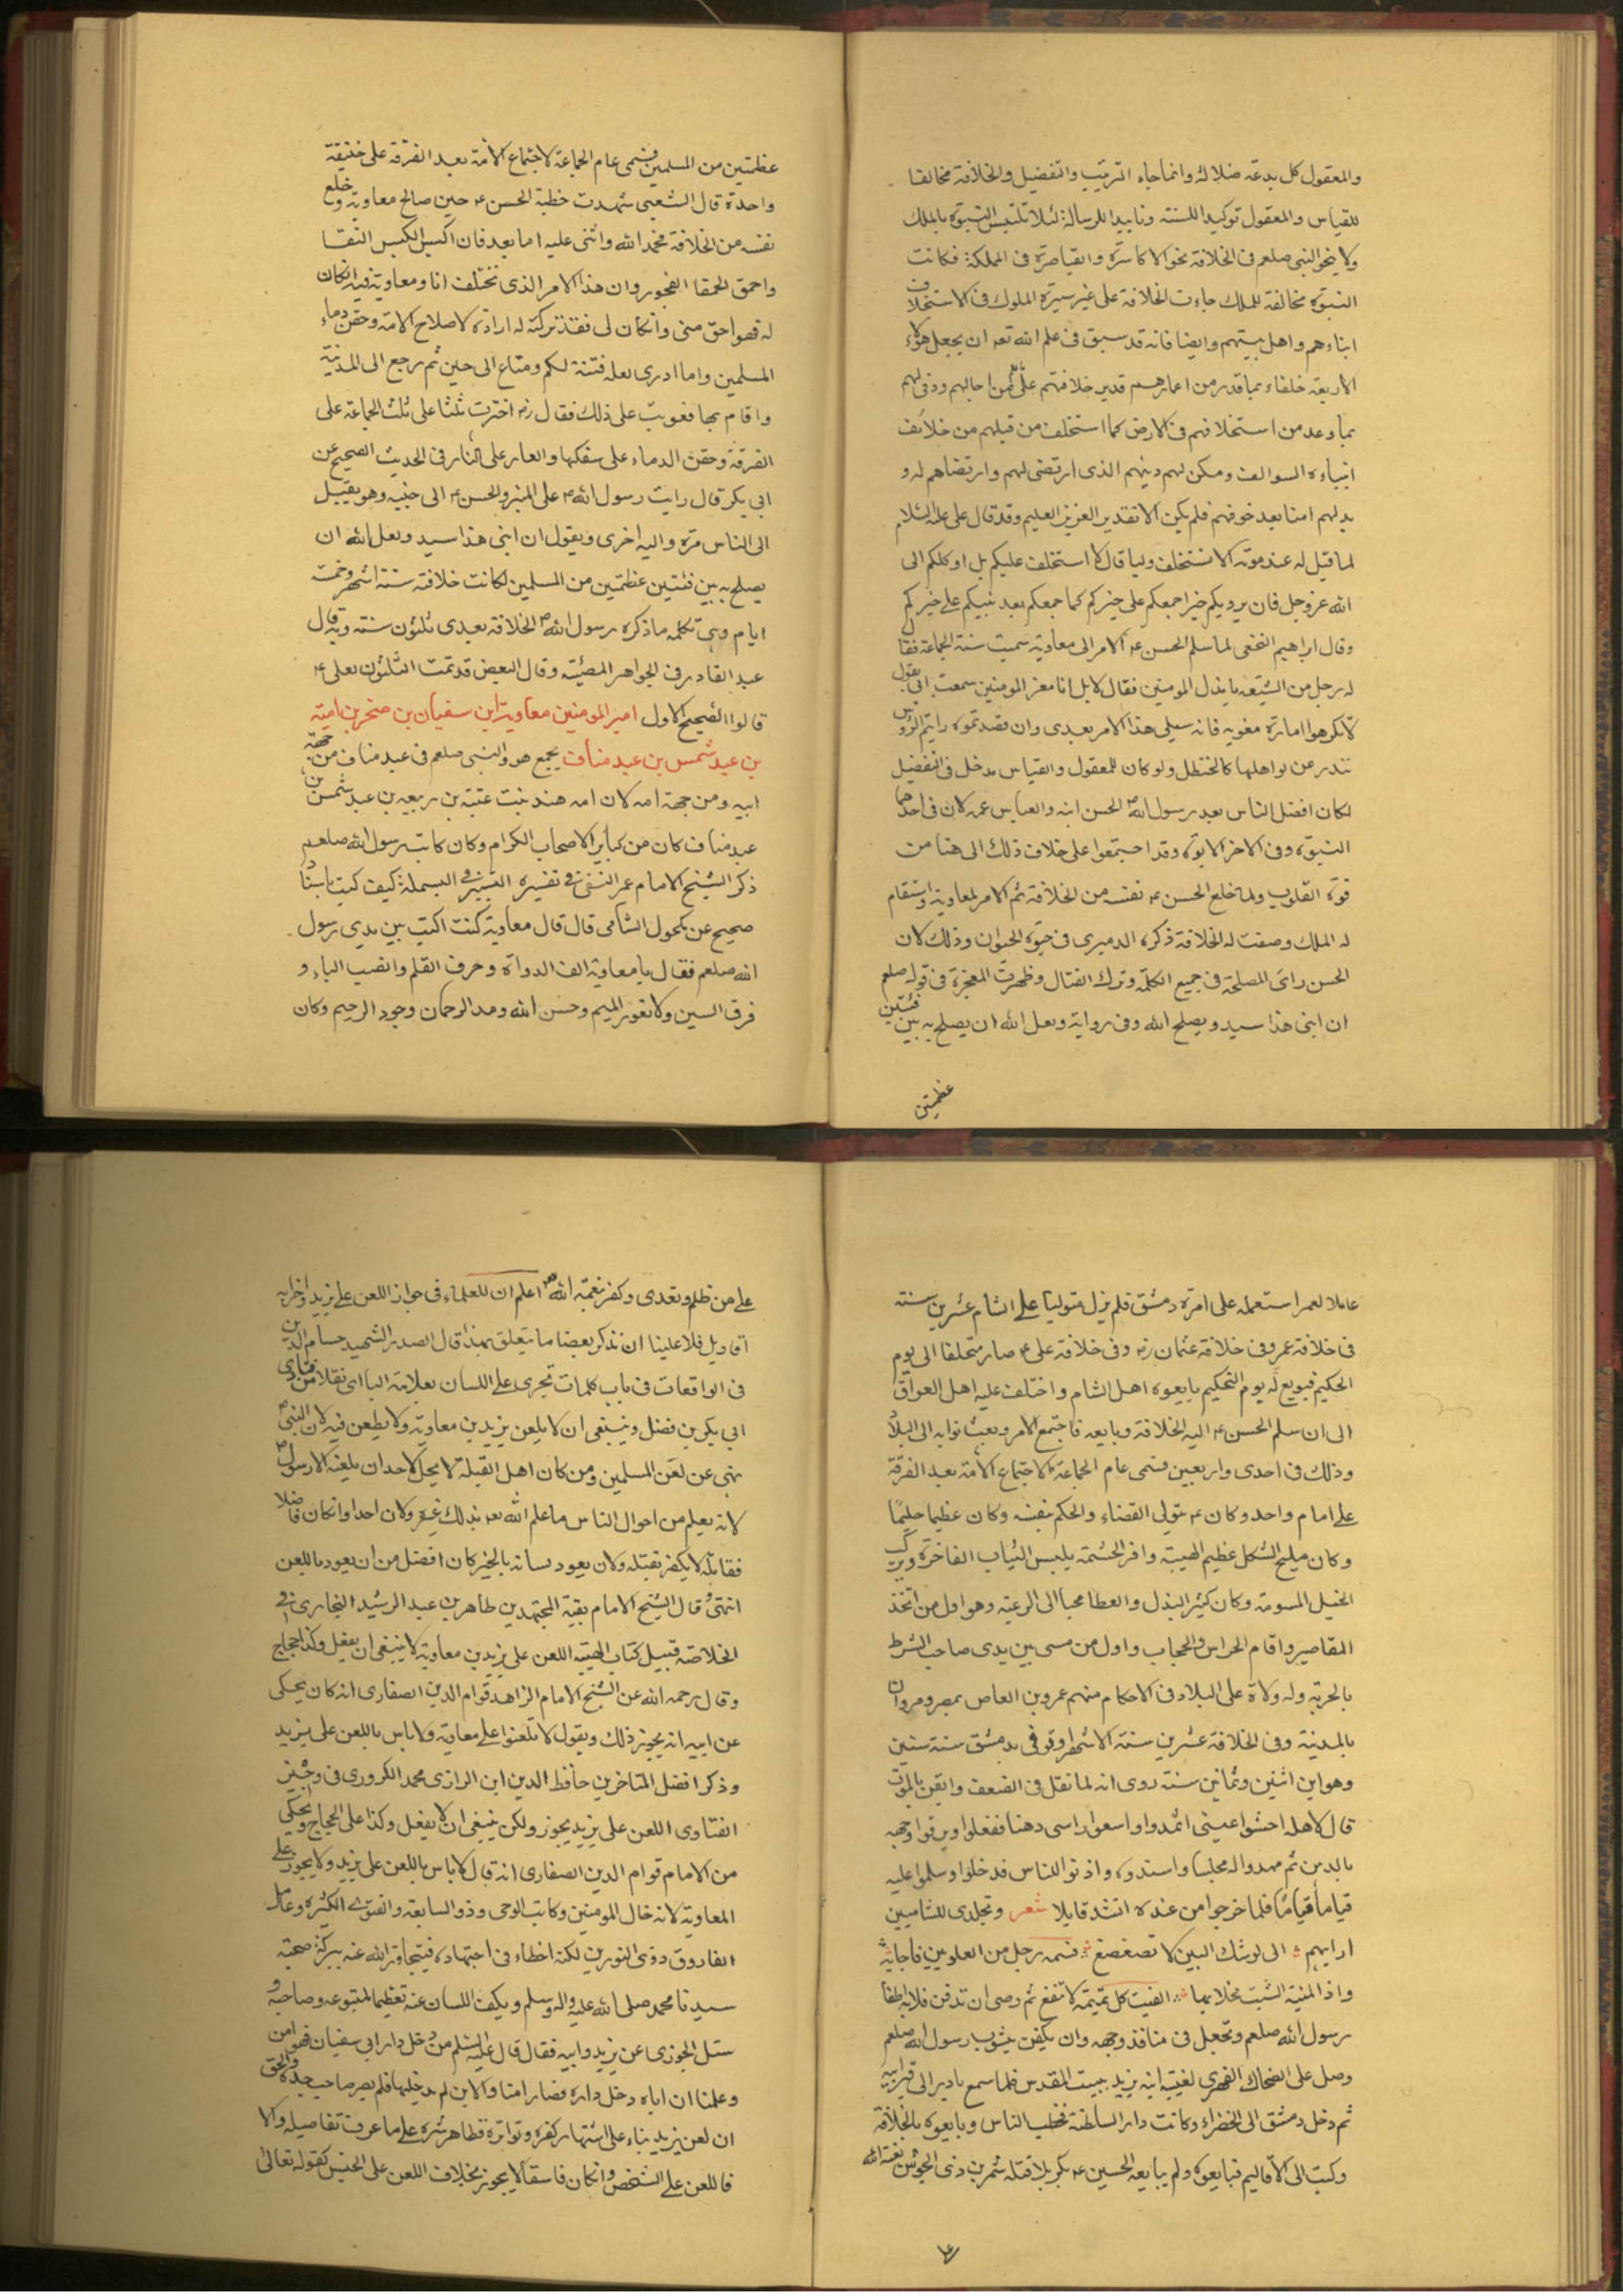 والمعقول كل بدعة ضلالة وانما جاء الترتيب والتفضيل والخلافة مخالفا
للقياس والمعقول توكيدا للسنة وتاييدا للرسالة لئلا تلتبس النبوة بالملك
ولا ينحو النبى صلعم فى الخلافة نحو الاكاسرة والقياصرة فى المملكة فكانت
النبوة مخالفة للملك جاءت الخلافة على غير سيرة الملوك فى الاستخلاف
ابناءهم واهل بيتهم وايضا فانه قد سبق فى علم الله تعه ان يجعل هؤلاء
الاربعة خلفاء بما قدر من اعمارهم قدير خلافتهم على من اجالهم ووفى لهم
بما وعد من استخلافهم فى الارض كما استخلف من قبلهم من خلائف
انبياءه السوالف ومكن لهم دينهم الذى ارتضى لهم وارتضاهم له و
بدلهم امنا بعد خوفهم فلم يكن الا تقدير العزيز العليم وقد قال على عليه السلام
لما قيل له عند موته الا تستخلف وليا قال لا استخلف عليكم بل اوكلكم الى
الله عز وجل فان يرد بكم خيرا جمعكم على خيركم كما جمعكم بعد نبيكم على خيركم
وقال ابراهيم النخعى لما سلم الحسن عه الامر الى معاوية سميت سنة الجماعة فقال
له رجل من الشيعة يا مذل المومنين فقال لا بل انا معز المومنين سمعت ابى يقول
لا تكرهوا امارة معويه فانه سيلى هذا الامر بعدى وان فقدتموه رايتم الرؤس
تندر عن كواهلها كالحنظل ولو كان للمعقول والقياس مدخل فى التفضيل
لكان افضل الناس بعد رسول الله الحسن ابنه والعباس عمه لان فى احدهما
النبوة وفى الاخر الابوة وقد اجتمعوا على خلاف ذلك الى هنا من
قوة القلوب ولما خلع الحسن عه نفسه من الخلافة تم الامر لمعاوية واستقام
له الملك وصفت له الخلافة ذكره الدميرى فى حيوة الحيوان وذلك لان
الحسن راى المصلحة فى جميع الكلمة وترك القتال وظهرت المعجزة فى قوله صلعم
ان ابنى هذا سيد ويصلح الله وفى رواية ولعل الله ان يصلح به بين فئتين
عظمتين
عظمتين من المسلمين فسمى عام الجماعة لاجتماع الامة بعد الفرقة على خليفة
واحدة قال الشعبى شهدت خطبة الحسن عه حين صالح معاوية وخلع
نفسه من الخلافة فحمد الله واثنى عليه اما بعد فان اكيس الكيس التقا
واحمق الحمقا الفجور وان هذا الامر الذى تختلف انا ومعاوية فيه ان كان
له فهو احق منى وان كان لى فقد تركته له ارادة لاصلاح الامة وحقن دماء
المسلمين واما ادرى لعله فتنة لكم ومتاع الى حين ثم رجع الى المدينة
واقام بها فعوتب على ذلك فقال رضه اخترت ثلثا على ثلث الجماعة على
الفرقة وحقن الدماء على سفكها والعار على النار فى الحديث الصحيح عن
ابى بكر قال رايت رسول الله على المنبر والحسن عه الى جنبه وهو يقبل
الى الناس مرة واليه اخرى ويقول ان ابنى هذا سيد ولعل الله ان
يصلح به بين فئتين عظمتين من المسلمين لكانت خلافته ستة اشهر وخمسة
ايام وهى تكلمه ما ذكره رسول الله الخلافة بعدى ثلثون سنته وبه قال
عبد القادر فى الجواهر المضيئة وقال البعض قد تمت الثلثون بعلى عه
قالوا الصحيح الاول امير المومنين معاوية ابن سفيان بن صخر بن امية
بن عبد شمس بن عبد مناف يجمع هو والنبى صلعم فى عبد مناف من جهة
ابيه ومن جهة امه لان امه هند بنت عتبة بن ربيعه بن عبد شمس بن
عبد مناف كان من كبائر الاصحاب الكرام وكان كاتب رسول الله صلعم
ذكر الشيخ الامام عمر النسفى فى تفسيره التيسير فى البسملة كيف كتبت باسناد
صحيح عن مكحول الشامى قال قال معاوية كنت اكتب بين يدى رسول
الله صلعم فقال يا معاوية الف الدواة وحرف القلم وانصب الباء و
فرق السين ولا تعور الميم وحسن الله ومد الرحمان وجود الرحيم وكان
عاملا لعمر استعمله على امرة دمشق فلم يزل متوليا على الشام عشرين سنته
فى خلافة عمر وفى خلافة عثمان رضه وفى خلافة على عه صار متخلفا الى يوم
الحكيم فبويع له يوم التحكيم بايعوه اهل الشام واختلف عليه اهل العراق
الى ان سلم الحسن عه اليه الخلافة وبايعه فاجتمع الامر وبعث نوابه الى البلاد
وذلك فى احدى واربعين فسمى عام الجماعة لاجتماع الامة بعد الفرقة
على امام واحد وكان عه يتولى القضاء والحكم بنفسه وكان عظيما حليما
وكان مليح الشكل عظيم الهيبة وافر الحشمة يلبس الثياب الفاخرة ويركب
الخيل المسومة وكان كثير البذل والعطا محبا الى الرعية وهو اول من اتخذ
المقاصير واقام الحراس والحجاب واول من مسى بين يدى صاحب الشرط
بالحربة وله ولاة على البلاد فى الاحكام منهم عمرو بن العاص بمصر ومروان
بالمدينة وفى الخلافة عشرين سنة الا شهرا وتوفى بدمشق سنة ستين
وهو ابن اثنين وثمانين سنة روى انه لما ثقل فى الضعف وايقن بالموت
قال لاهله احشوا عينى اثمدا واوسعوا راسى دهنا ففعلوا وبرقوا وجهه
بالدهن ثم مهدوا له مجلسا واسندوه واذنوا للناس فدخلوا وسلموا عليه
قياما قياما فلما خرجوا من عنده انشد قايلا شعر وتجلدى للشامتين
اريهم الى لوشك البين لا تصغصغ فسمه رجل من العلويين فاجابه
واذا المنية انشبت مخلابها الفيت كل تميمة لا تنفع ثم وصى ان تدفن قلابه اظفا
رسول الله صلعم وتجعل فى منافذ وجهه وان يكفن بثوب رسول الله صلعم
وصل على الضحاك الفهرى لغيبته ابنه يزيد ببيت المقدس فلما سمع بادر الى قبر ابيه
ثم دخل دمشق الى الخضراء وكانت دار السلطنة فخطب الناس وبايعوه بالخلافة
وكتب الى الاقاليم فبايعوه ولم يبايعه الحسين عه بكربلا قتله شمر بن ذى الجوش لعنة الله
على من ظلم وتعدى وكفر نعمة الله اعلم ان للعلماء فى جواز اللعن على يزيد واخرابه
اقاويل فلا علينا ان نذكر بعضا ما يتعلق بهذا قال الصدر الشهيد حسام الدين
فى الواقعات فى باب كلمات تجرى على اللسان بعلامة الباء اى نقلا من فتاوى
ابى بكر بن فضل وينبغى ان لا يلعن يزيد بن معاوية ولا يطعن فيه لان النبى
نهى عن لعن المسلمين ومن كان اهل القبلة لا يحل لاحد ان يلعنه الا رسول
لانه يعلم من احوال الناس ما علم الله تعه بذلك غيره ولان احدا وان كان فاضلا
فقاتله لا يكفر بقتله ولان يعود لسانه بالخير كان افضل من ان يعود باللعن
انتهى وقال الشيخ الامام بقية المجتهدين طاهر بن عبد الرشيد البخارى فى
الخلاصة قبيل كتاب الهيبة اللعن على يزيد بن معاوية لا ينبغى ان يفعل وكذا حجاج
وقال رحمه الله عن الشيخ الامام الزاهد قوام الدين الصفارى انه كان يحكى
عن ابيه انه يجوز ذلك ويقول لا تلعنوا على معاوية ولا باس باللعن على يزيد
وذكر افضل المتاخرين حافظ الدين ابن الرازى محمد الكرورى فى وجيز
الفتاوى اللعن على يزيد يجوز ولكن ينبغى ان لا يفعل وكذا على الحجاج ويحكى
من الامام قوام الدين الصفارى انه قال لا باس باللعن على يزيد ولا يجوز على
المعاوية لانه خال المومنين وكاتب الوحى وذو السابقة والفتوى الكثيرة وعامل
الفاروق وذى النورين لكنه اخطاء فى اجتهاده فيتجاوز الله عنه ببركة صحبة
سيدنا محمد صلى الله عليه واله وسلم ويكف اللسان عنه تعظيما لمتبوعه وصاحبه و
سئل الجوزى عن يزيد وابيه فقال قال عليه السلم من دخل دار ابى سفيان فهو امن
وعلمنا ان اباه دخل داره فصار امنا والابن لم يدخلها فلم يصر صاحب جده والحق
ان لعن يزيد بناء على اشتهار كفره وتواتره فظاهر شره على ما عرف تفاصيله والا
فاللعن على الشخص وان كان فاسقا لا يجوز بخلاف اللعن على الجنس كقوله تعالى